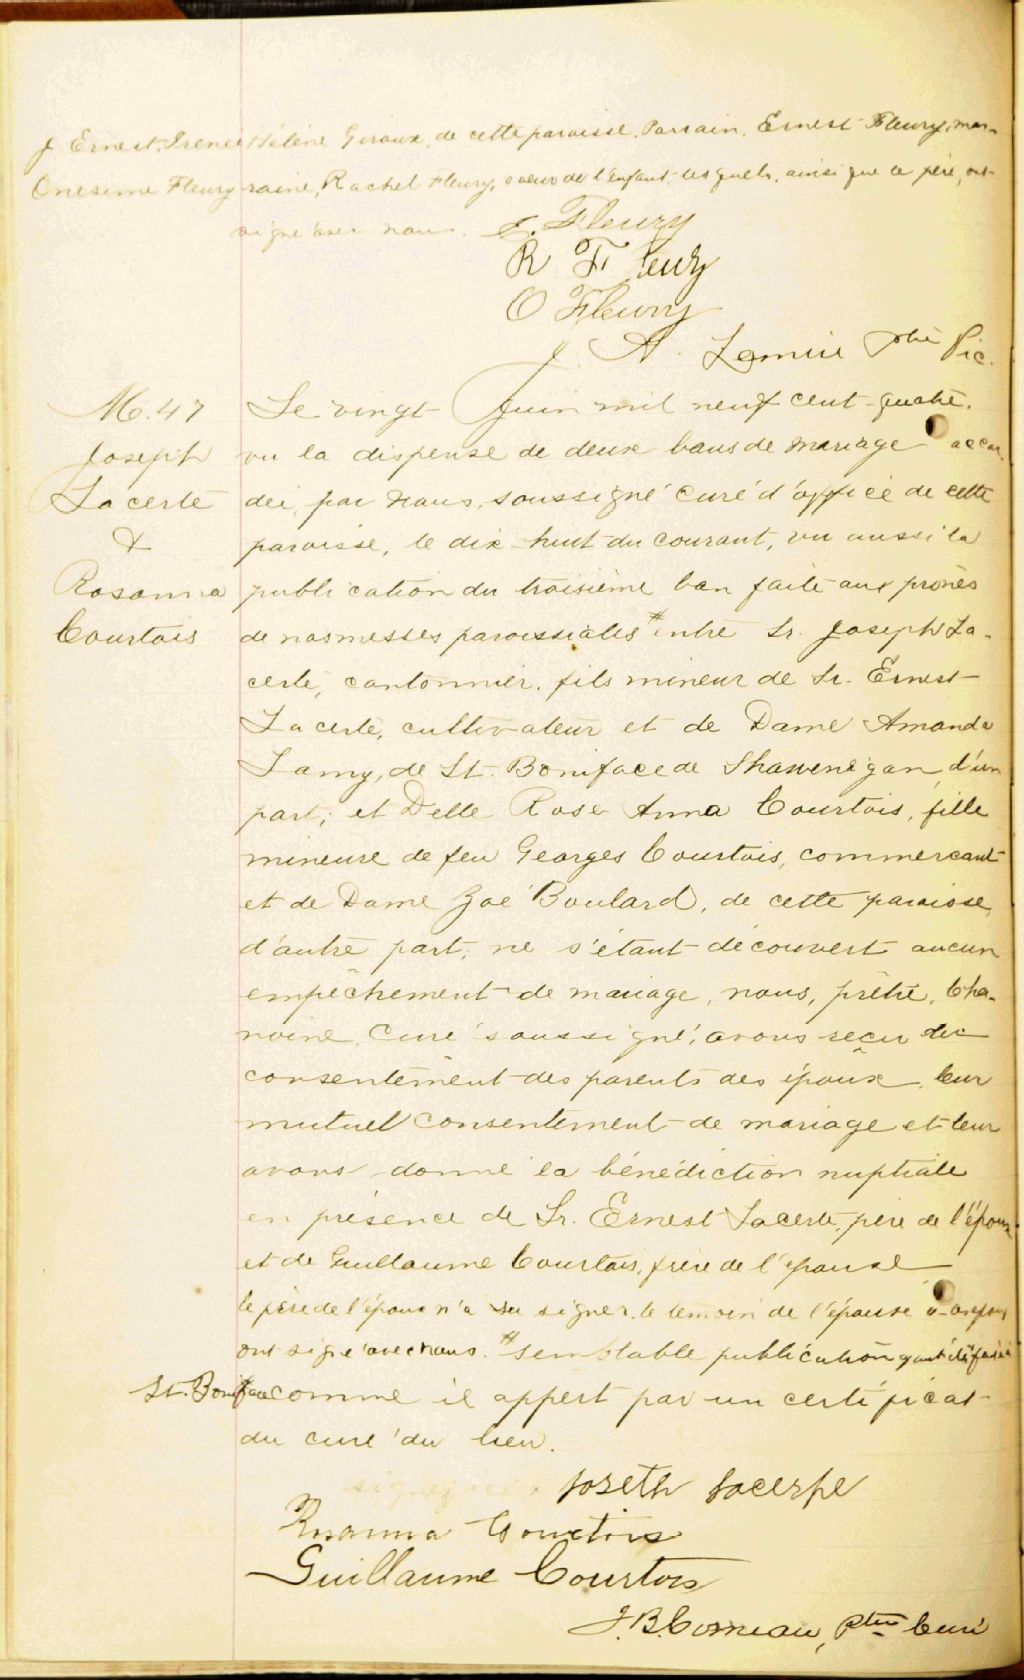 J Ernest, Irenee Hélène Giroux, de cette paroisse. Parrain, Ernest Fleury, mar-
Onesime Fleury raine, Rachel Fleury, soeur de l'enfant lesquels, ainsi que le père, ont
signé avec nous. E. Fleury
R Fleury
O Fleury
J. A. Lemire Ptre Vic.
M. 47 Le vingt Juin mil neuf cent-quatre.
Joseph vu la dispense de deux bans de mariage accor-
Lacerte dée, par nous, soussigné curé d'office de cette
& paroisse, le dix-huit du courant, vu aussi la
Rosanna publication du troisième ban faite aux prônes
Courtois de nos messes paroissiales # entre Sr. Joseph La-
certe, cantonnier, fils mineur de Sr. Ernest
Lacerte, cultivateur et de Dame Amanda
Lamy, de St. Boniface de Shawenegan, d'un
part; et Delle Rose Anna Courtois, fille
mineure de feu Georges Courtois, commercant
et de Dame Zoé Boulard, de cette paroisse,
d'autre part, ne s'étant découvert aucun
empêchement de mariage, nous, prêtre, Cha-
noine Curé soussigné, avons reçu du
consentement des parents des époux, leur
mutuel consentement de mariage et leur
avons donné la bénédiction nuptiale
en présence de Sr. Ernest Lacerte, père de l'époux
et de Guillaume Courtois, frère de l'épouse
le père de l'époux n'a su signer, le témoin de l'épouse
ont signé avec nous. # semblable publication ayant été faite à
St. Boniface comme il appert par un certificat
du curé du lieu.
Joseth Lacerpe
Rosanna Courtois
Guillaume Courtois
J. B. Comeau, Ptre Curé